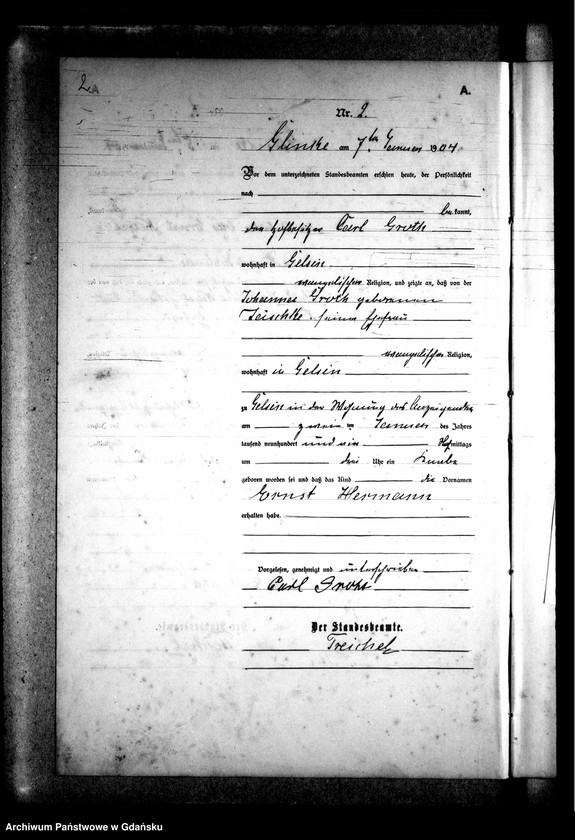 2
A.
Nr. 2.
Glinke am 7ten Januar 1904
Vor dem unterzeichneten Standesbeamten erschien heute, der Persönlichkeit
nach
be kannt,
der Hofbesitzer Carl Groth
wohnhaft in Gelsin
evangelischer Religion, und zeigte an, daß von der
Johannes Groth geborenen
Jäschke, seiner Ehefrau
evangelischer Religion,
wohnhaft in Gelsin
zu Gelsin in der Wohnung des Anzeigenden
am zwein ten Januar des Jahres
tausend neunhundert und vier mittags
um drei Uhr ein Knabe
geboren worden sei und daß das Kind die Vornamen
Ernst Hermann
erhalten habe.
Vorgelesen, genehmigt und unterschrieben
Carl Groht
Der Standesbeamte.
Treichel
Archiwum Państwowe w Gdańsku